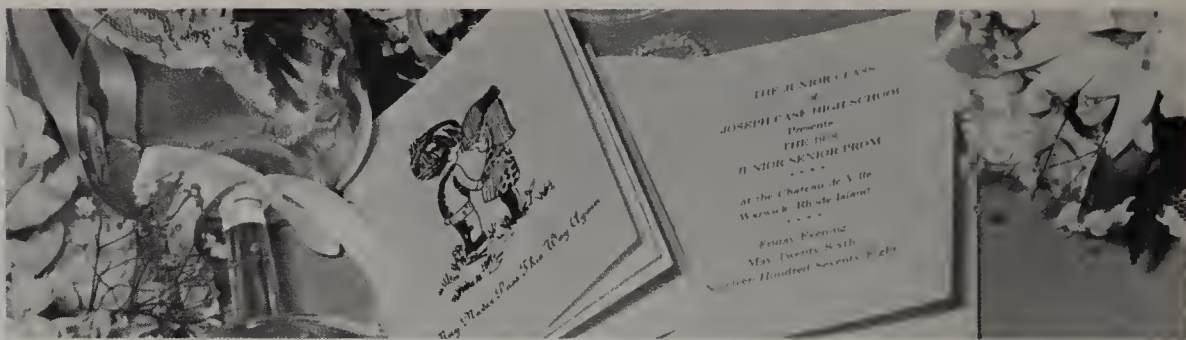 May Never Pass This Way Again
THE JUNIOR CLASS
of
JOSEPH CASE HIGH SCHOOL
Presents
THE 1978
JUNIOR SENIOR PROM
* * * *
at the Chateau de Ville
Warwick, Rhode Island
* * * *
Friday Evening
May Twenty Sixth
Nineteen Hundred Seventy Eight